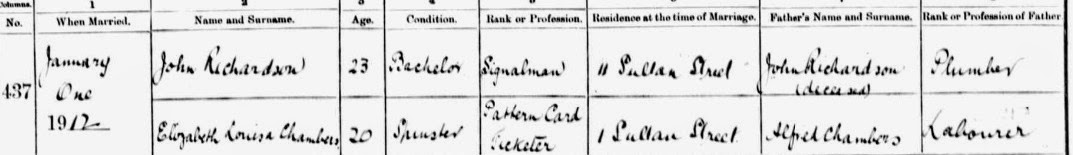 Columns. 1 2 3 4 5 6 7 8
No. When Married. Name and Surname. Age. Condition. Rank or Profession. Residence at the time of Marriage. Father's Name and Surname. Rank or Profession of Father
437 January One 1912 John Richardson 23 Bachelor Signalman 11 Sultan Street John Richardson (deceased) Plumber
Elizabeth Louisa Chambers 20 Spinster Pattern Card Ticketer 1 Sultan Street Alfred Chambers Labourer